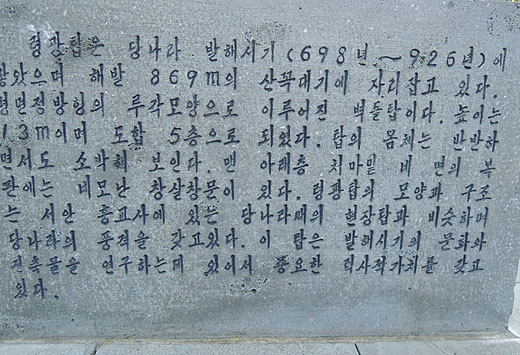 령광탑은 당나라 발해시기(698년～926년)에
았으며 해발 869m의 산꼭대기에 자리잡고 있다.
평면정방형의 루각모양으로 이루어진 벽돌탑이다. 높이는
13m이며 도합 5층으로 되였다. 탑의 몸체는 반반하
면서도 소박해 보인다. 맨 아래층 처마밑 네 면의 복
판에는 네모난 창살창문이 있다. 령광탑의 모양과 구조
는 서안 흥교사에 있는 당나라때의 현장탑과 비슷하며
당나라의 풍격을 갖고있다. 이 탑은 발해시기의 문화와
건축물을 연구하는데 있어서 중요한 력사적가치를 갖고
있다.